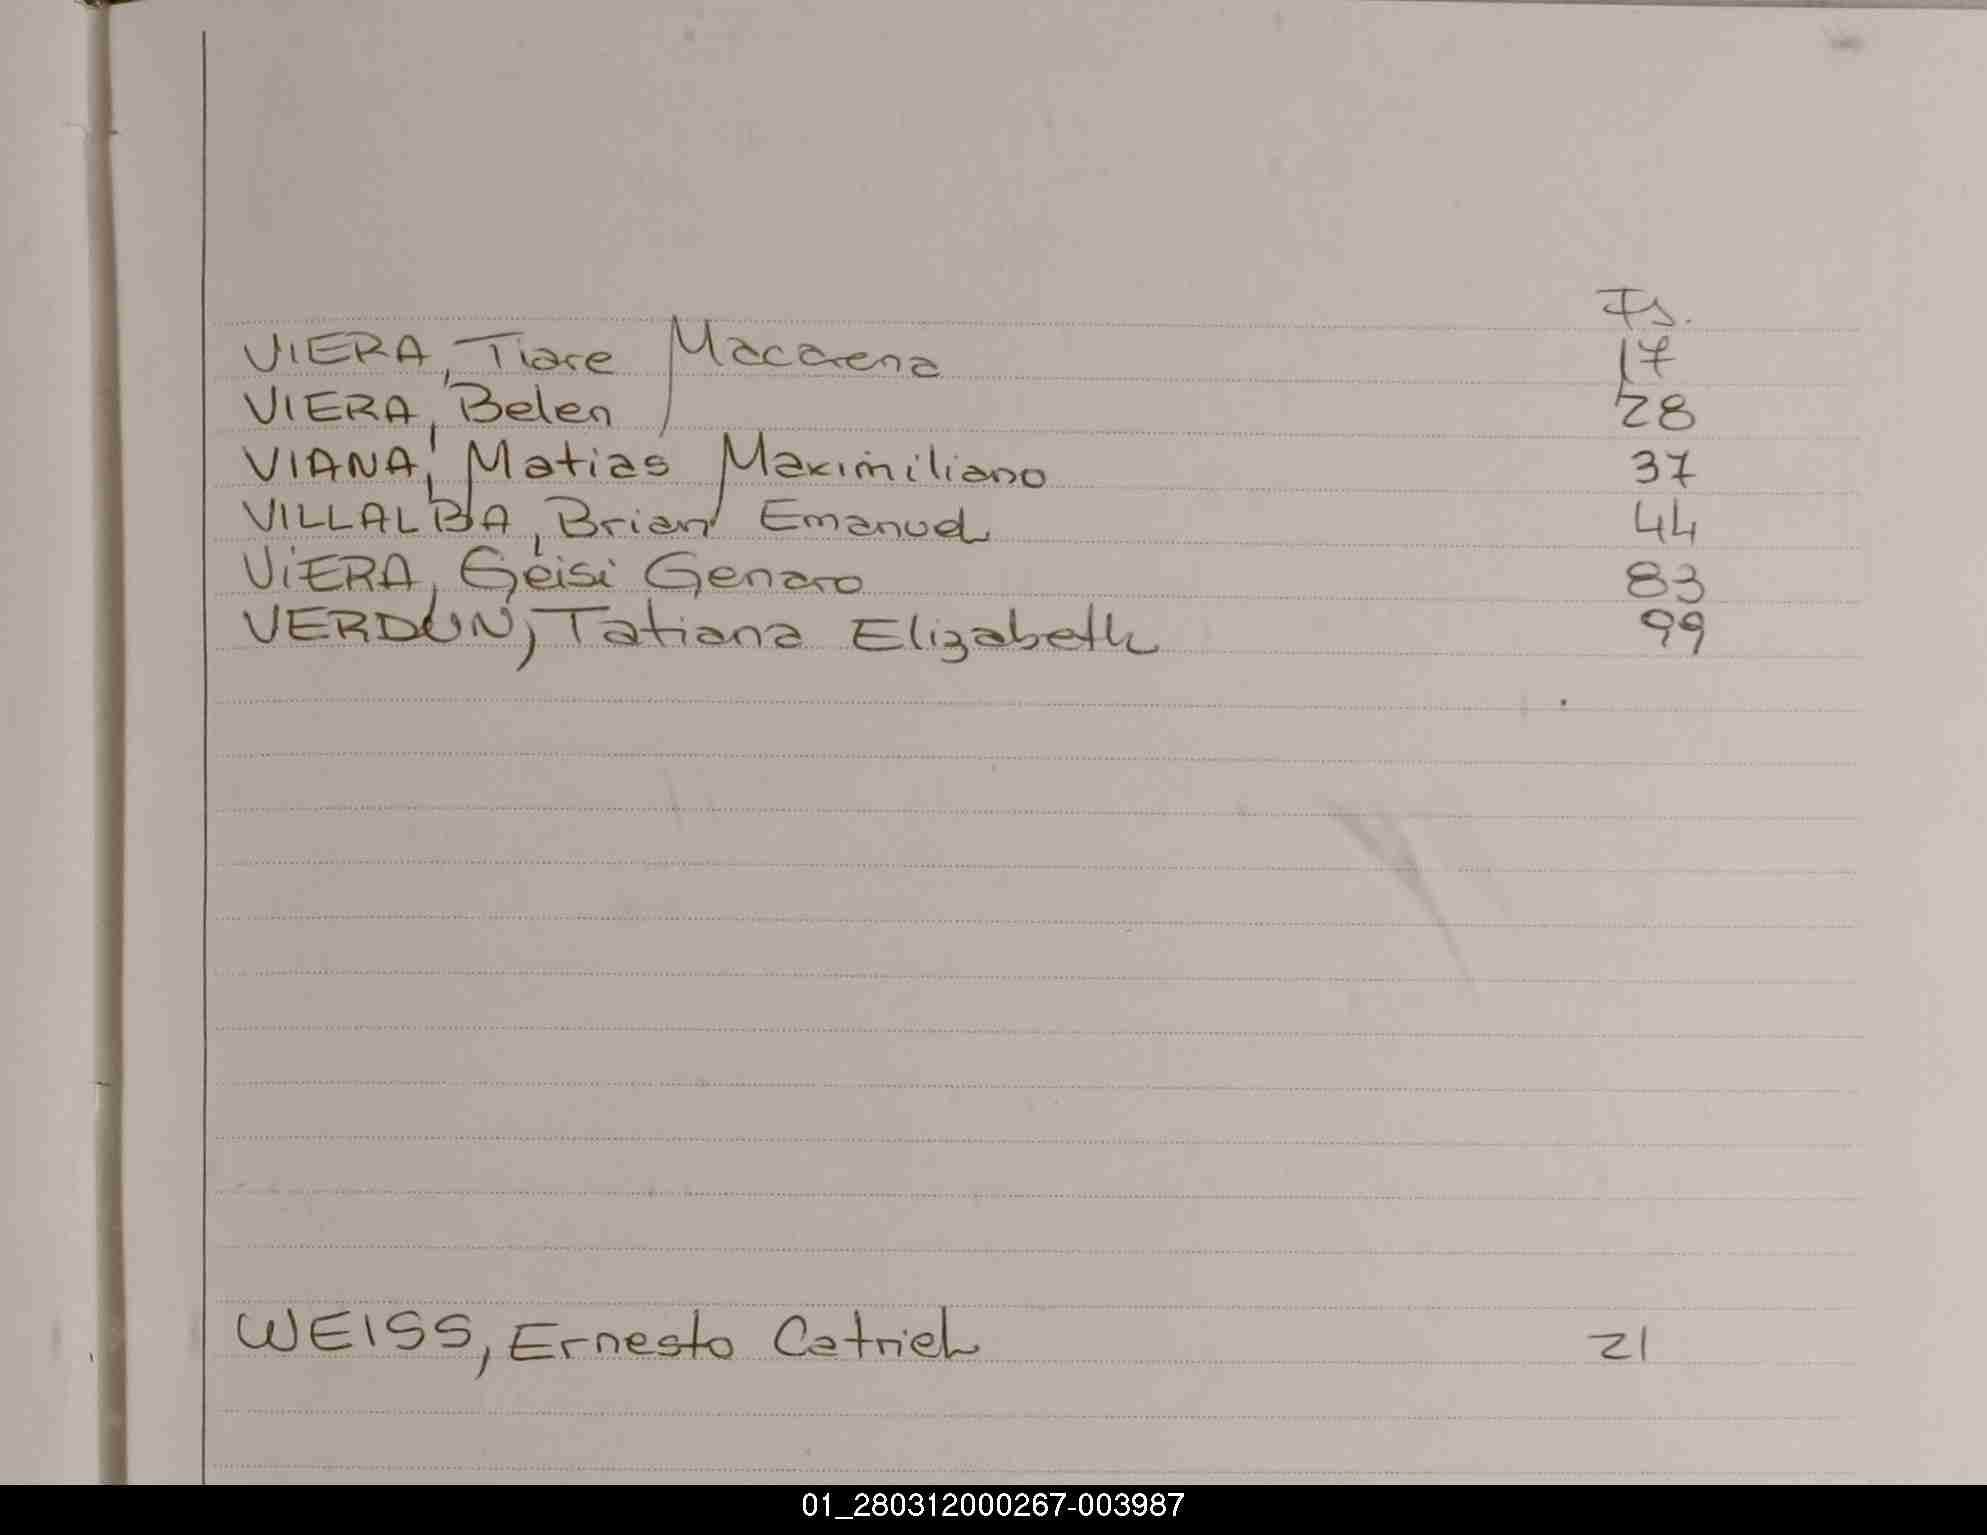 Fs.
VIERA, Tiare Macarena 17
VIERA, Belen 28
VIANA, Matias Maximiliano 37
VILLALBA, Brian Emanuel 44
VIERA, Geisi Genaro 83
VERDUN, Tatiana Elizabeth 99
WEISS, Ernesto Catriel 21
01_280312000267-003987